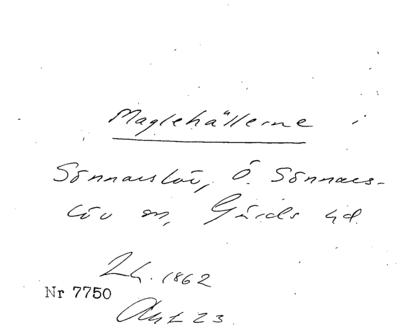 Maglehällerne i
Sönnarslöv, Ö. Sönnars-
löv sn, Gärds hd.
Lh. 1862
Nr 7750
Akt 23.